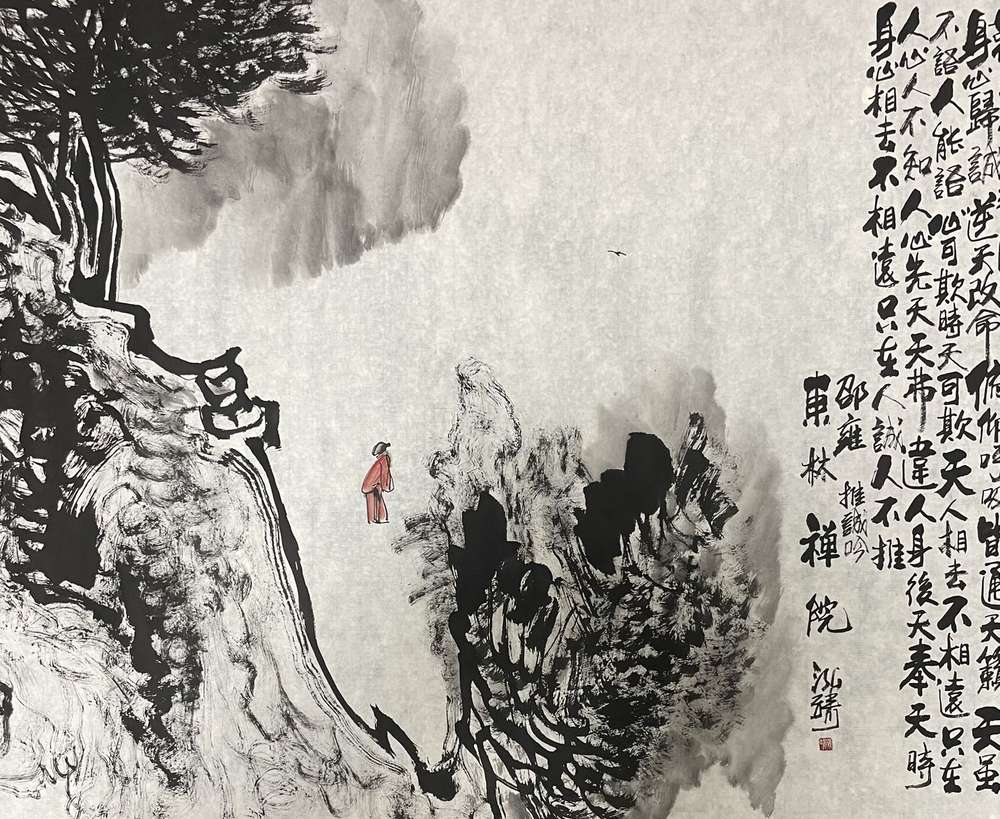 身心歸誠逆天改命皆通天籟天雖
不語人能語心可欺時天可欺天人相去不相遠只在
人心人不知人心先天天弗違人身後天奉天時
身心相去不相遠只在人誠人不推
邵雍推誠吟
東林禅院